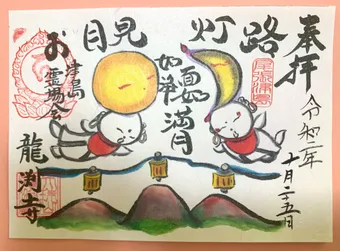 奉拝
令和二年
十月二十五日
お月見灯路
尾張津島
如浄
満月
津島
霊場会
龍渕寺